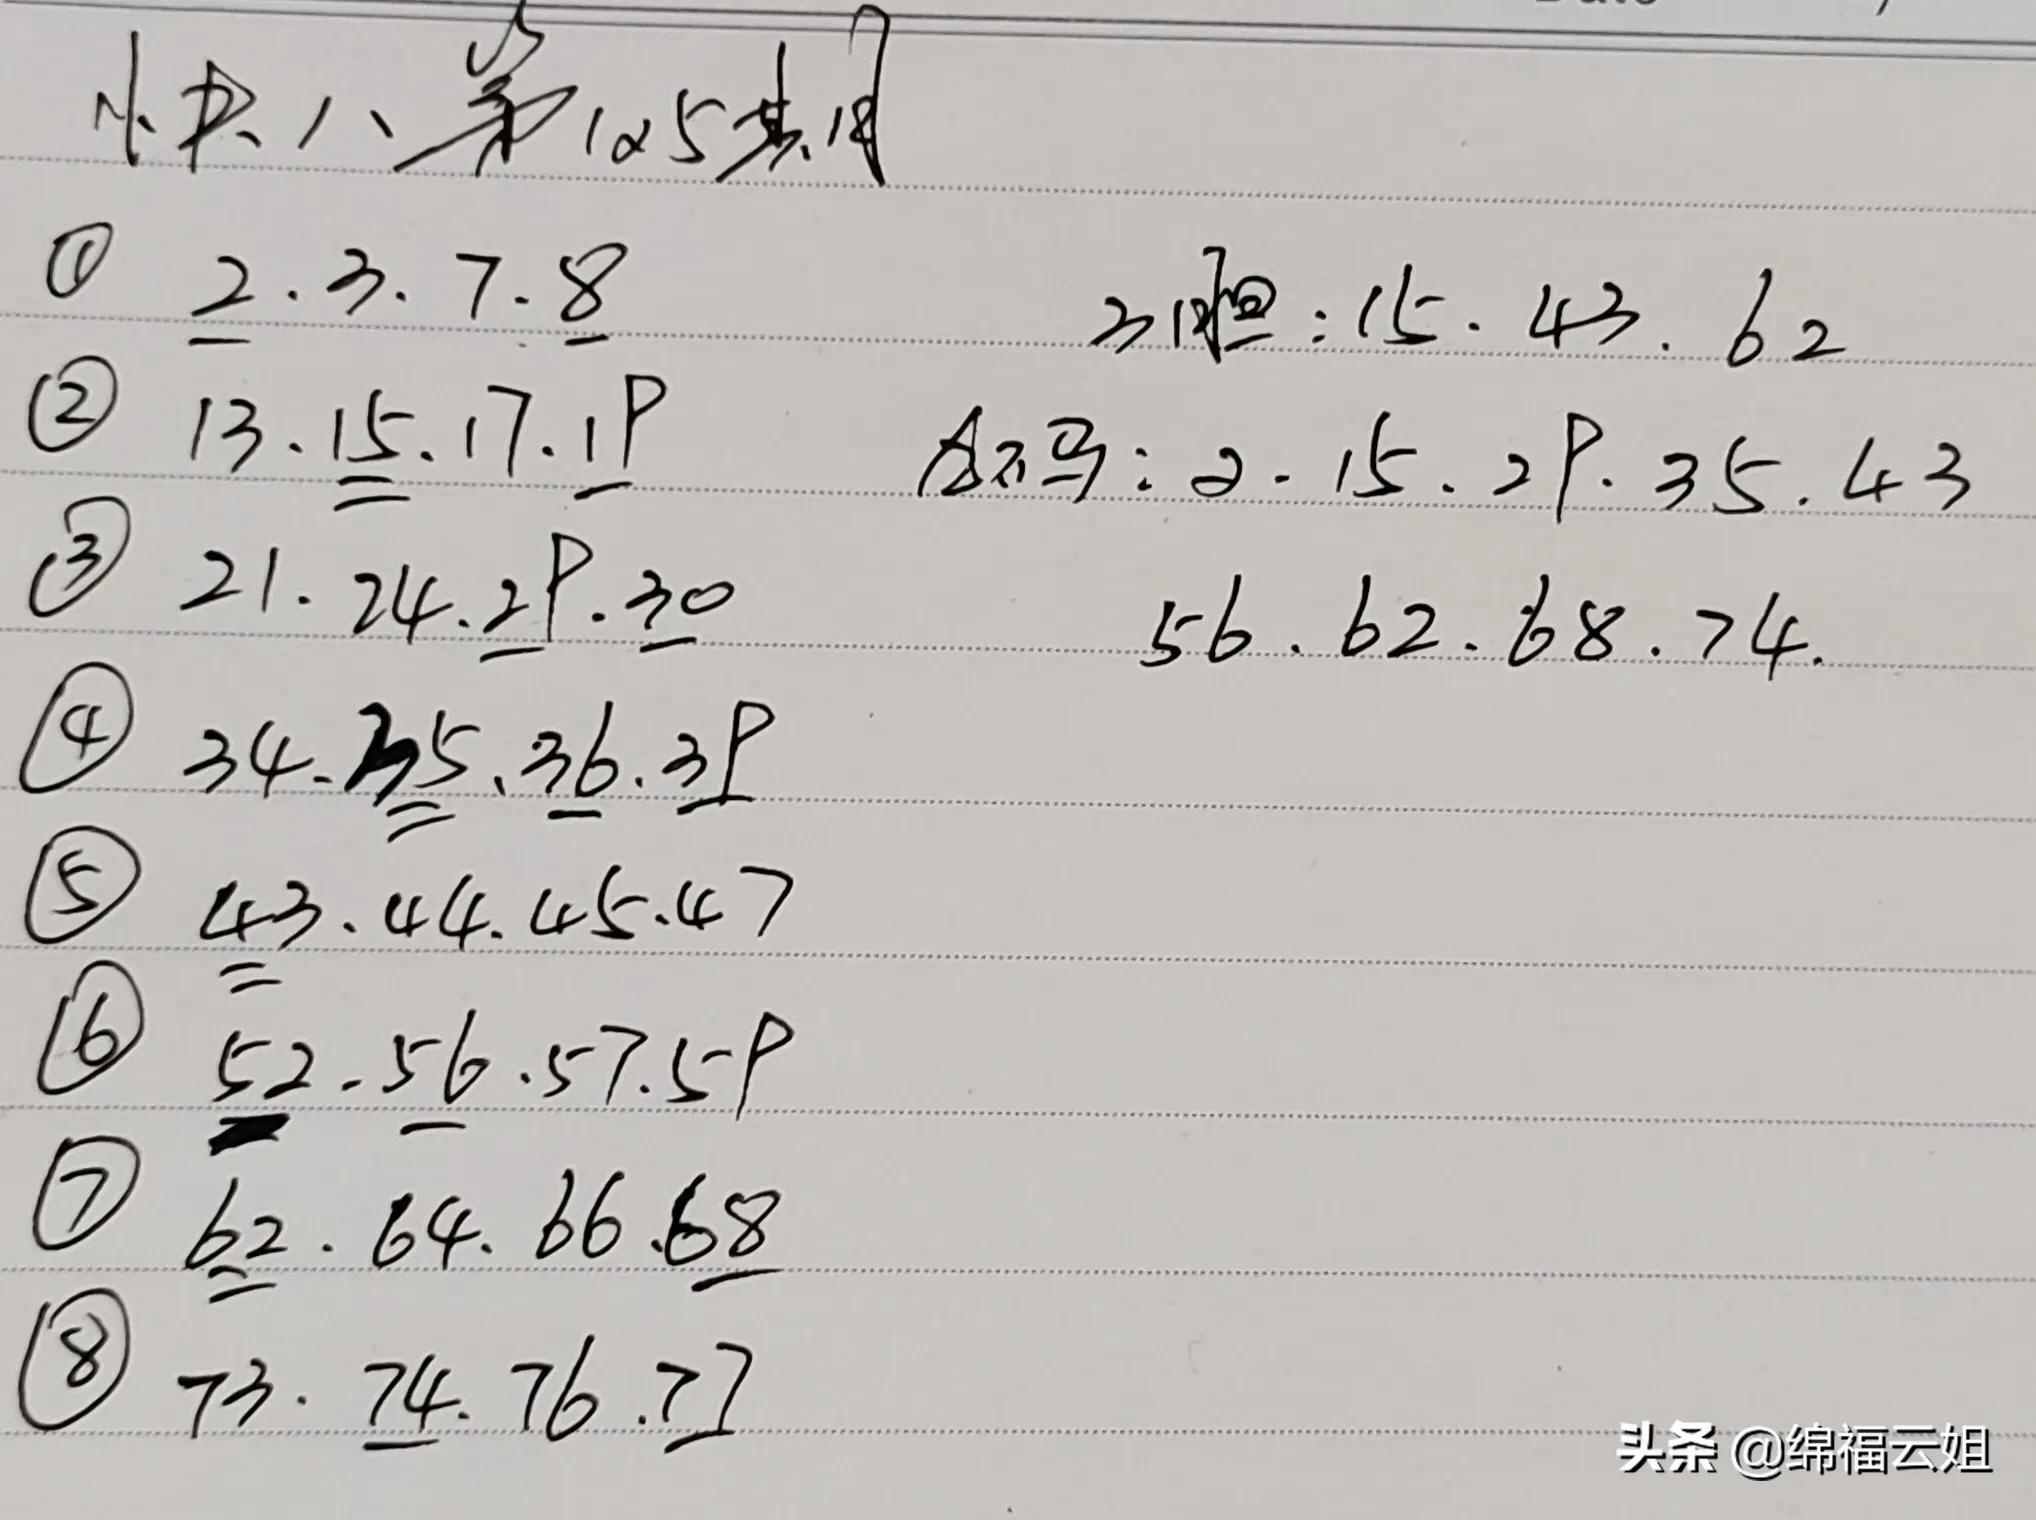 Date /
快八第125期
① 2.3.7.8
② 13.15.17.19
③ 21.24.29.30
④ 34.35.36.39
⑤ 43.44.45.47
⑥ 52.56.57.59
⑦ 62.64.66.68
⑧ 73.74.76.77
3胆:15.43.62
:2.15.29.35.43
56.62.68.74.
头条 @绵福云姐